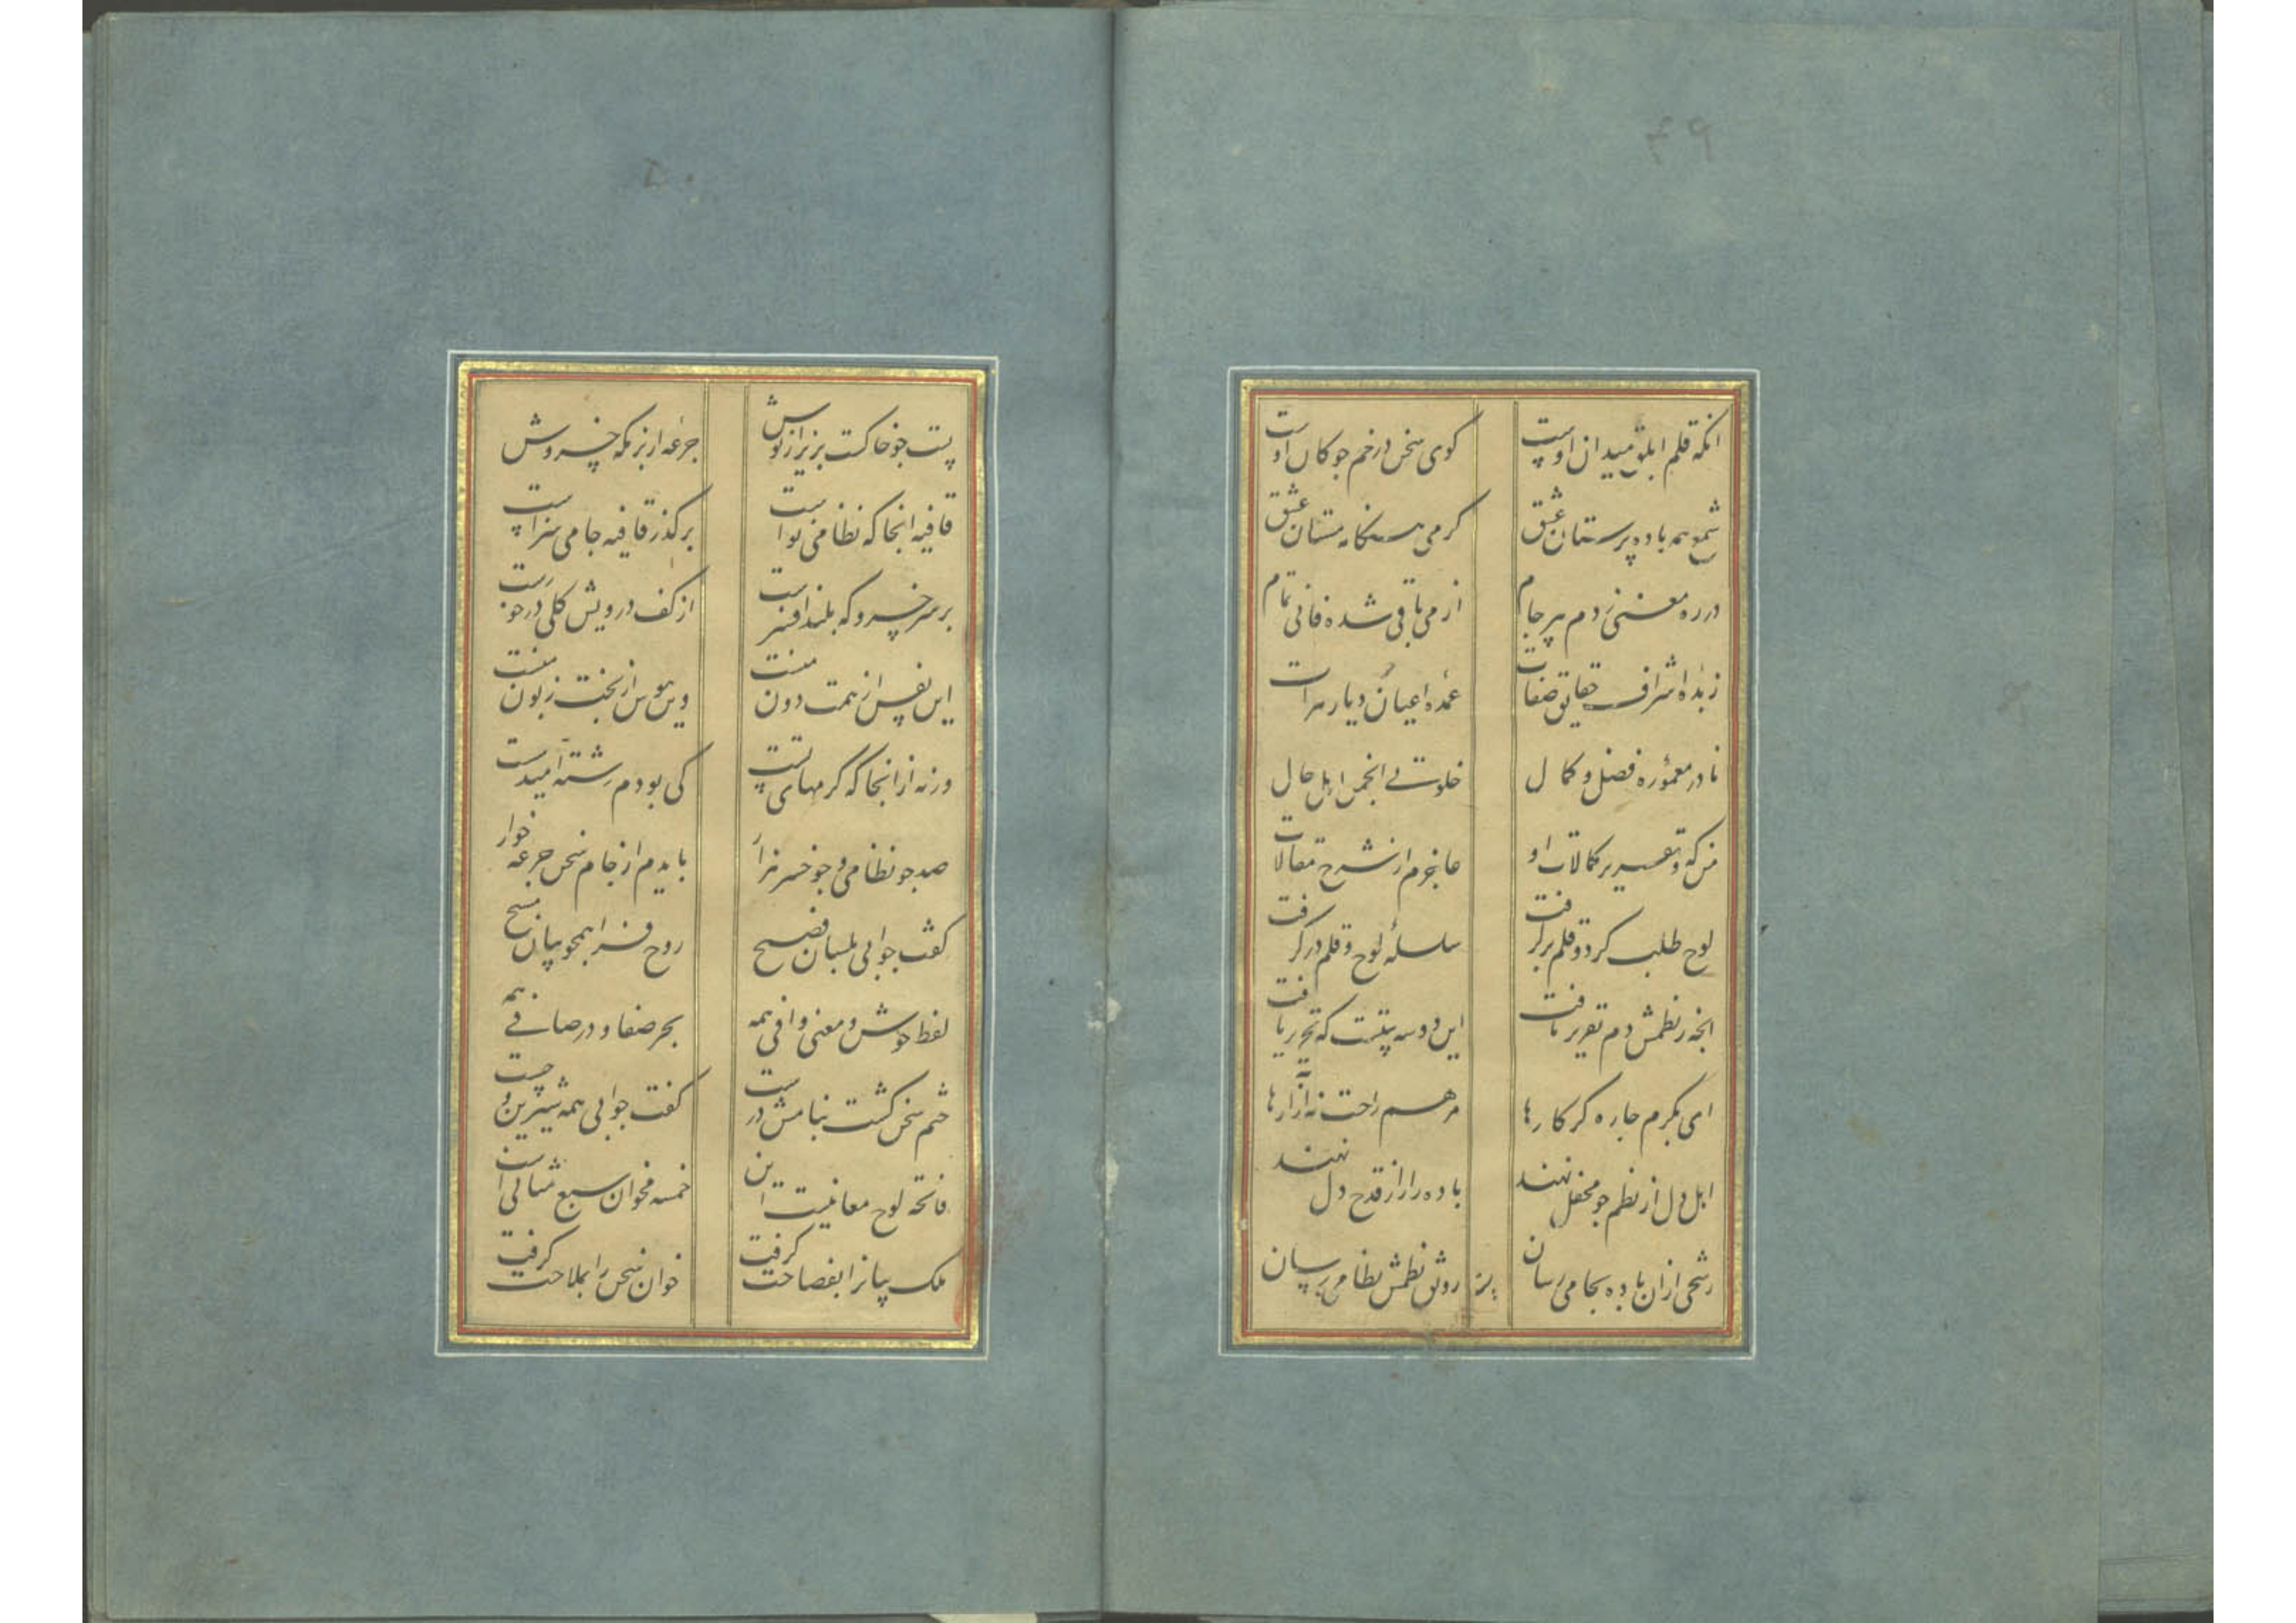 ۴۹
انکه قلم ابلق میدان اوست کوی سخن در خم جوکان اوست
شمع همه باده پرستان عشق کرمی هنکامه مستان عشق
در ره معنی زدم پیر جام از می باقی شده فانی تمام
زبدهٔ اشراف حقایق صفات عمدهٔ اعیان دیار هرات
نادر معمورهٔ فضل و کمال خلوتی انجمن اهل حال
من که و تقریر کمالات او عاجزم از شرح مقالات
لوح طلب کرد و قلم برگرفت سلسلهٔ لوح و قلم درگرفت
انجه ز نظمش دم تقریر یافت این دو سه بیتست که تحریر یافت
ای بکرم جاره کر کارها مرهم راحت نه آزارها
اهل دل از نظم جو محفل نهند باده راز از قدح دل نهند
رشحی ازان باده بجامی رسان رونق نظمش بنظامی رسان
۵۰
پست جو خاکست بریز از نوش جرعه از بزمکه خسروش
قافیه انجا که نظامی نواست بر کذر قافیه جامی سزاست
بر سر خسرو که بلند افسرست از کف درویش کلی درخورست
این نفس از همت دون منست وین هوس از بخت زبون منست
ورنه از انجا که کرمهای تست کی بودم رشته امید سست
صد جو نظامی و جو خسرو هزار بایدم از جام سخن جرعه خوار
کفت جوابی بلسان فصیح روح فزا همجو بیان مسیح
لفظ خوش و معنی وافی همه بحر صفا و در صافی همه
ختم سخن کشت بنامش درست کفت جوابی همه شیرین و چست
فاتحه لوح معانیست این خمسه مخوان سبع مثانی است
ملک بیانرا بفصاحت کرفت خوان سخن را بملاحت کرفت